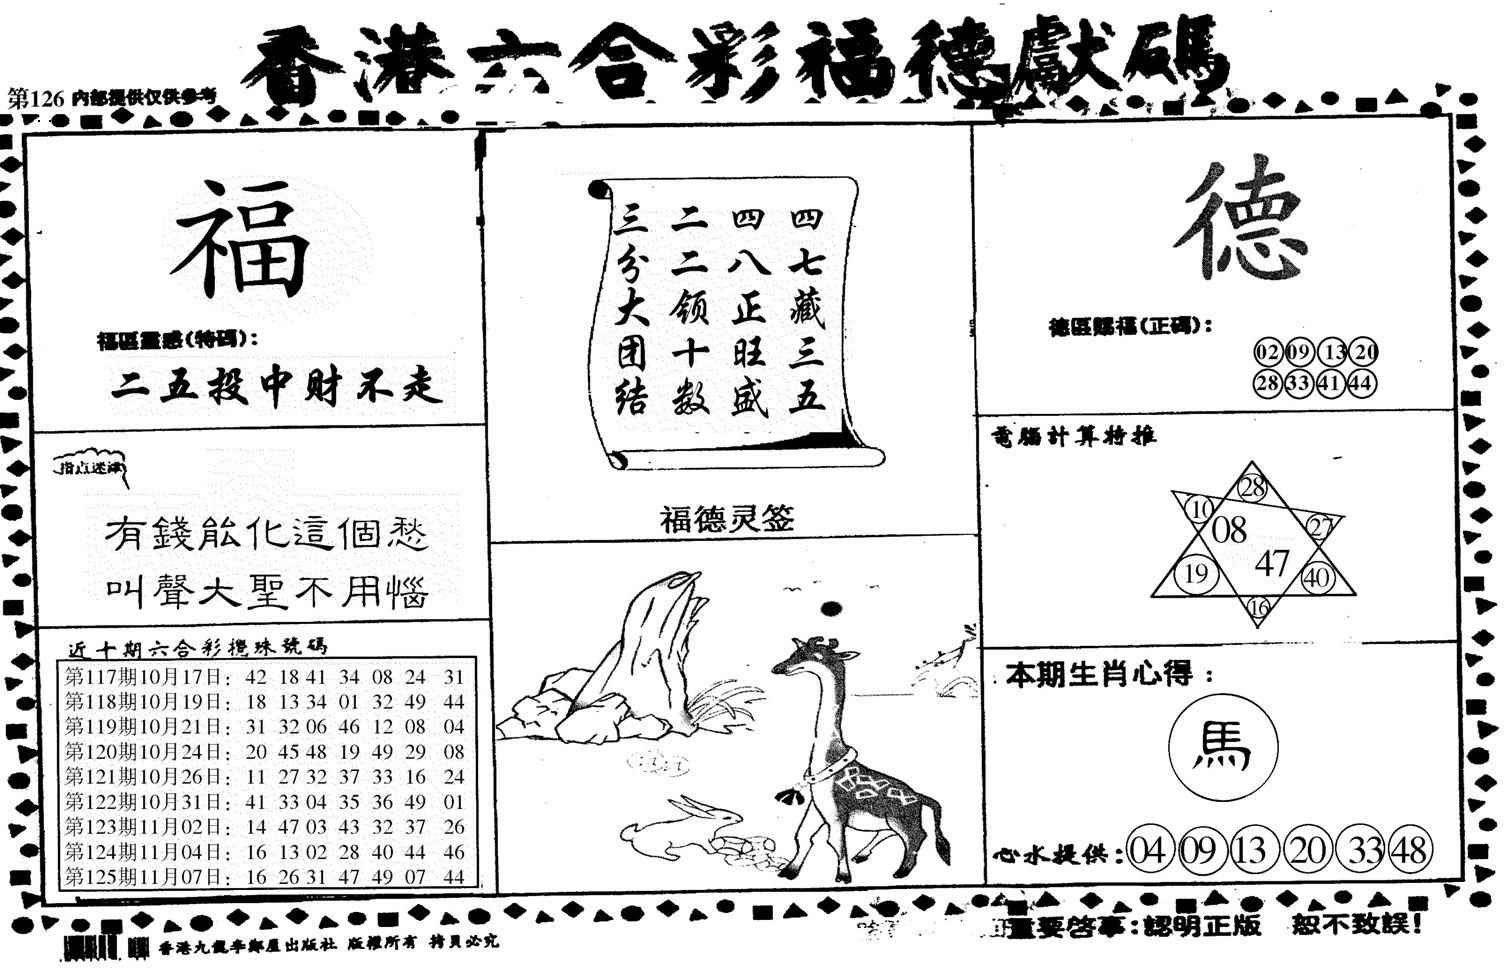 香港六合彩福德獻碼
第126 内部提供仅供参考
福
福區靈感(特碼):
二五投中财不走
指点迷津
有錢能化這個愁
叫聲大聖不用惱
近十期六合彩攪珠號碼
第117期10月17日: 42 18 41 34 08 24 31
第118期10月19日: 18 13 34 01 32 49 44
第119期10月21日: 31 32 06 46 12 08 04
第120期10月24日: 20 45 48 19 49 29 08
第121期10月26日: 11 27 32 37 33 16 24
第122期10月31日: 41 33 04 35 36 49 01
第123期11月02日: 14 47 03 43 32 37 26
第124期11月04日: 16 13 02 28 40 44 46
第125期11月07日: 16 26 31 47 49 07 44
四七藏三五
四八正旺盛
二二领十数
三分大团结
福德灵签
德
德區賜福(正碼):
02 09 13 20
28 33 41 44
電腦計算特推
28
10
08
27
47
19
40
16
本期生肖心得:
馬
心水提供: 04 09 13 20 33 48
香港九龍李鄭屋出版社 版權所有 拷貝必究
重要啓事:認明正版 恕不致誤!